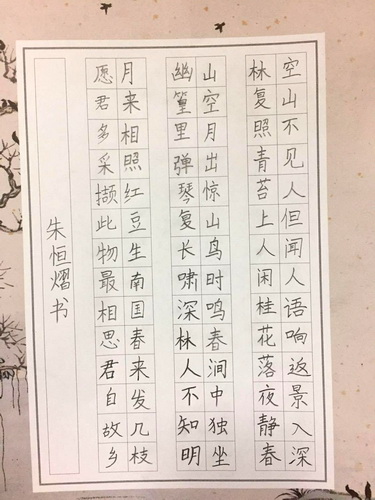 空山不见人但闻人语响返景入深
林复照青苔上人闲桂花落夜静春
山空月出惊山鸟时鸣春涧中独坐
幽篁里弹琴复长啸深林人不知明
月来相照红豆生南国春来发几枝
愿君多采撷此物最相思君自故乡
朱恒熠书